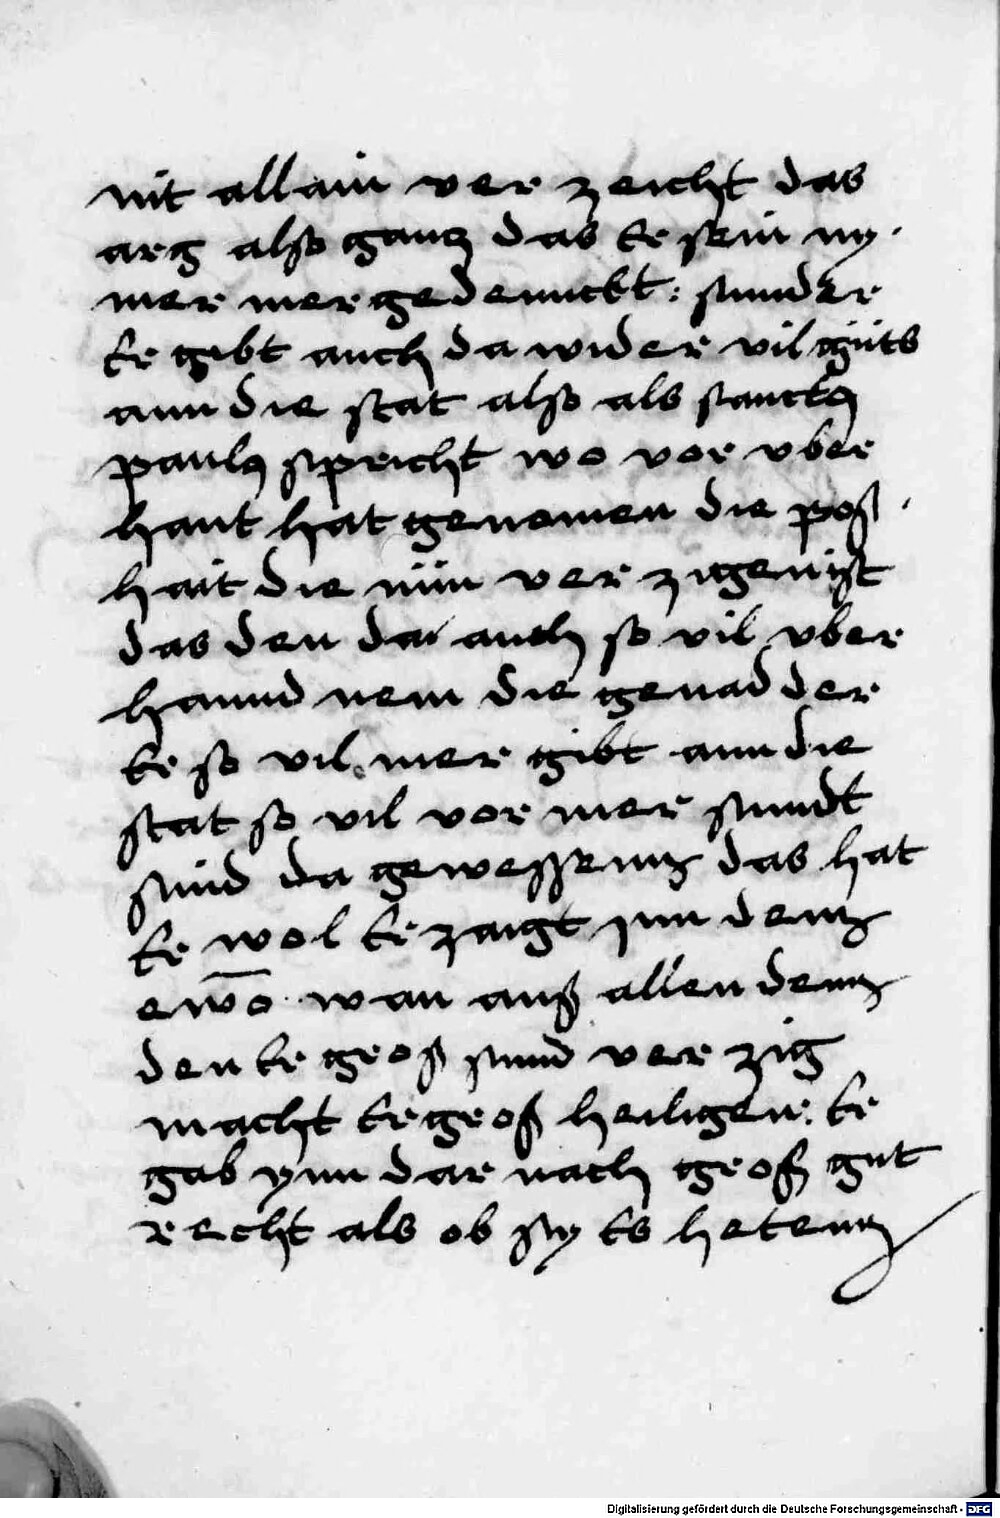 nit allain ver zeicht das
arg also gancz das er sein ny.
mer mer gedennckt: sunnder
er gibt auch da wider vil güts
ann die stat also als sanctus
paulus spricht wo vor vber
hant hat genomen die poß.
hait die nün ver zigen ist
das den da auch so vil vber
hannd nem die genad der
er so vil mer gibt ann die
stat so vil vor mer sunndt
sind da gewessenn das hat
er wol er zaigt jnn denn
ewō. wan auß allen denn
den er groß sunnd ver zig
macht er groß heiligen: er
gab ynn dar nach groß gut
recht als ob sy es hetenn
Digitalisierung gefördert durch die Deutsche Forschungsgemeinschaft - DFG